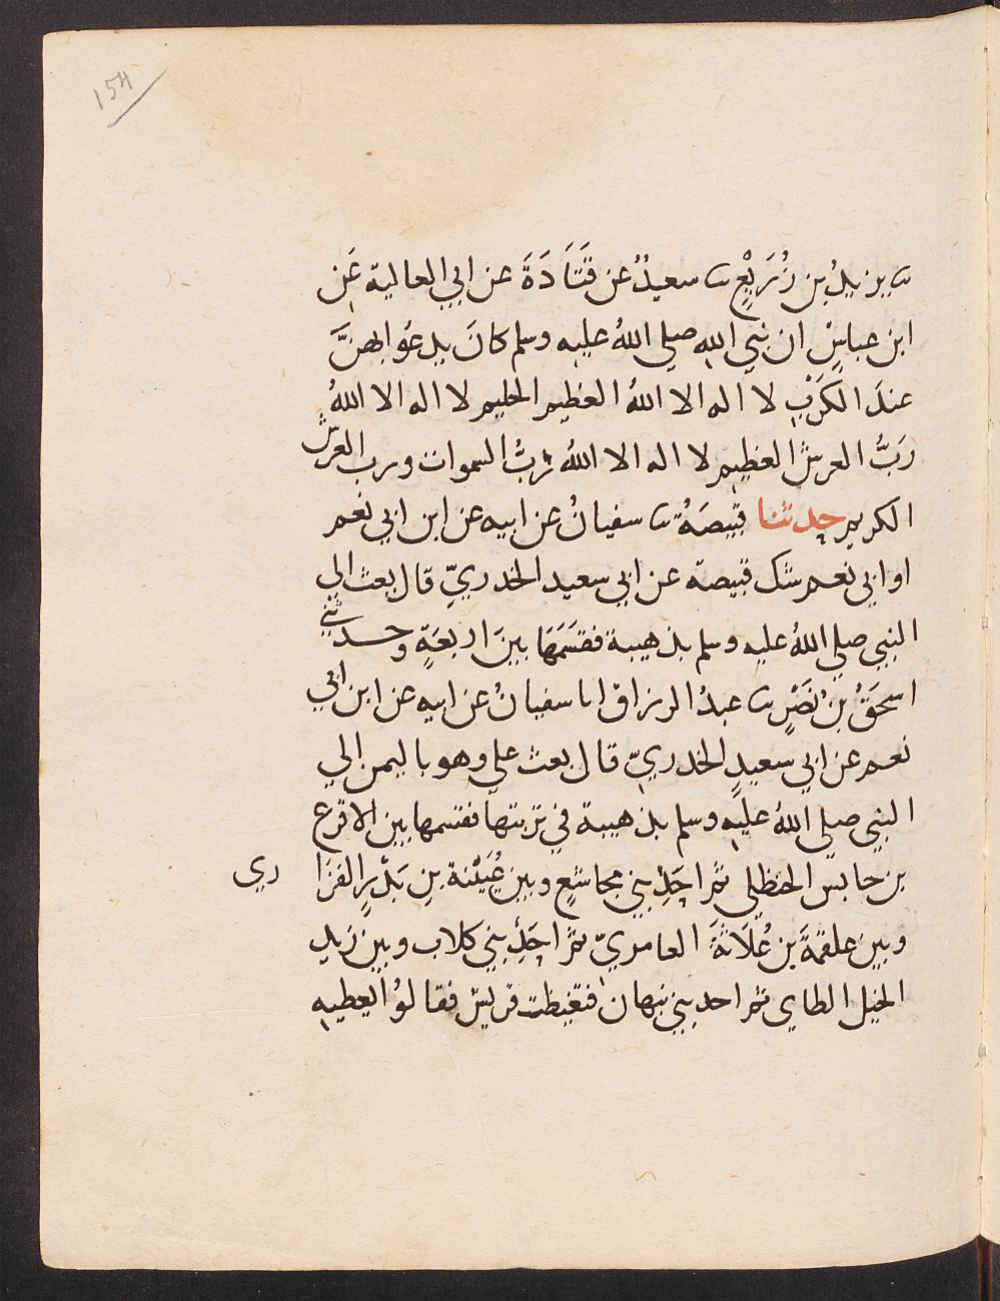 154
ثنا يزيدُ بن زُرَيْعٍ ثنا سعيدٌ عن قَتَادَةَ عن ابي العالية عَن
ابن عباسٍ ان نبي الله صلي اللهُ عليه وسلم كانَ يدعُوا بهنَّ
عندَ الكَرْبِ لا اله الا اللهُ العظيم الحليم لا اله الا اللهُ
رَبُّ العرش العظيم لا اله الا اللهُ ربُّ السموات ورب العرش
الكريم حدثنا قبيصَةُ ثنا سفيانُ عن ابيه عن ابن ابي نعم
او ابي نعم شك قبيصة عن ابي سعيد الخدريّ قال بعث الي
النبي صلي اللهُ عليه وسلم بذهيبة فقَسَمَهَا بينَ اربعَةٍ وحدثني
اسحقُ بنُ نَصْرٍ ثنا عبدُ الرزاق انا سفيانُ عن ابيه عن ابن ابي
نعم عن ابي سعيدٍ الخدريّ قال بعث علي وهو باليمن الي
النبي صلي اللهُ عليه وسلم بذهيبة في تربتها فقسمها بين الاقرع
بن حابس الحنظلي ثم احَدِ بني مجاشعٍ وبين عُيَيْنة بنِ بَدْرٍ الفزا ري
وبين علقمةَ بن عُلَاثَةَ العامريّ ثم احَدِ بني كلاب وبين زيد
الخيل الطاي ثم احد بني نبهان فتغيظت قريش فقالوُا يعطيه